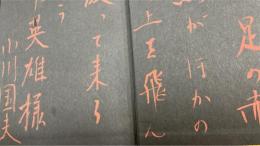 足の赤
がほかの
上を飛ん
って来る
う
英雄様
小川国夫